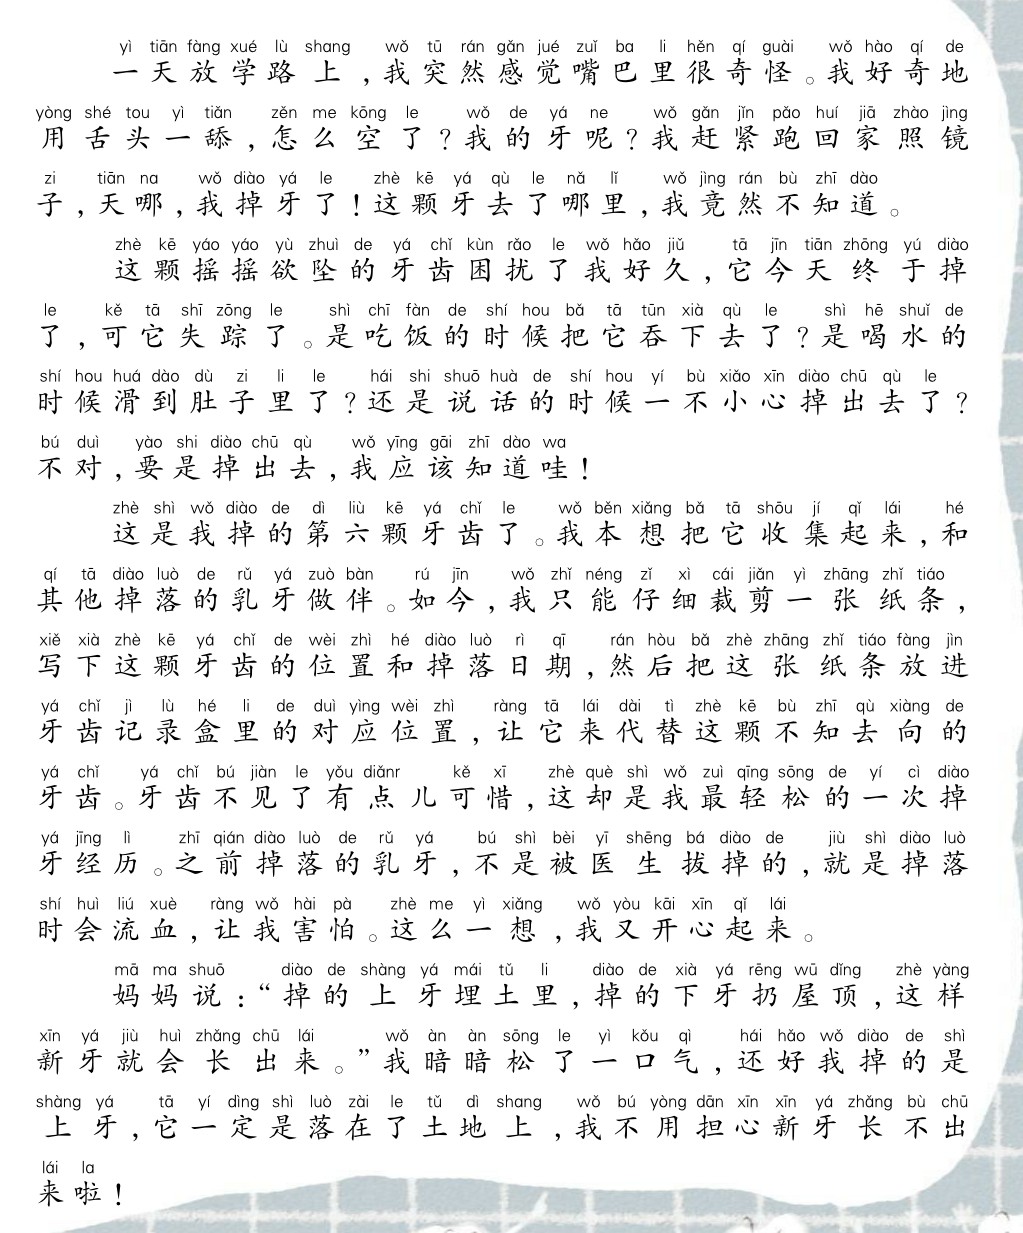 yì tiān fàng xué lù shang wǒ tū rán gǎn jué zuǐ ba li hěn qí guài wǒ hào qí de
一天放学路上，我突然感觉嘴巴里很奇怪。我好奇地
yòng shé tou yì tiǎn zěn me kōng le wǒ de yá ne wǒ gǎn jǐn pǎo huí jiā zhào jìng
用舌头一舔，怎么空了？我的牙呢？我赶紧跑回家照镜
zi tiān na wǒ diào yá le zhè kē yá qù le nǎ lǐ wǒ jìng rán bù zhī dào
子，天哪，我掉牙了！这颗牙去了哪里，我竟然不知道。
zhè kē yáo yáo yù zhuì de yá chǐ kùn rǎo le wǒ hǎo jiǔ tā jīn tiān zhōng yú diào
这颗摇摇欲坠的牙齿困扰了我好久，它今天终于掉
le kě tā shī zōng le shì chī fàn de shí hou bǎ tā tūn xià qù le shì hē shuǐ de
了，可它失踪了。是吃饭的时候把它吞下去了？是喝水的
shí hou huá dào dù zi li le hái shi shuō huà de shí hou yí bù xiǎo xīn diào chū qù le
时候滑到肚子里了？还是说话的时候一不小心掉出去了？
bú duì yào shi diào chū qù wǒ yīng gāi zhī dào wa
不对，要是掉出去，我应该知道哇！
zhè shì wǒ diào de dì liù kē yá chǐ le wǒ běn xiǎng bǎ tā shōu jí qǐ lái hé
这是我掉的第六颗牙齿了。我本想把它收集起来，和
qí tā diào luò de rǔ yá zuò bàn rú jīn wǒ zhǐ néng zǐ xì cái jiǎn yì zhāng zhǐ tiáo
其他掉落的乳牙做伴。如今，我只能仔细裁剪一张纸条，
xiě xià zhè kē yá chǐ de wèi zhì hé diào luò rì qī rán hòu bǎ zhè zhāng zhǐ tiáo fàng jìn
写下这颗牙齿的位置和掉落日期，然后把这张纸条放进
yá chǐ jì lù hé li de duì yìng wèi zhì ràng tā lái dài tì zhè kē bù zhī qù xiàng de
牙齿记录盒里的对应位置，让它来代替这颗不知去向的
yá chǐ yá chǐ bú jiàn le yǒu diǎnr kě xī zhè què shì wǒ zuì qīng sōng de yí cì diào
牙齿。牙齿不见了有点儿可惜，这却是我最轻松的一次掉
yá jīng lì zhī qián diào luò de rǔ yá bú shì bèi yī shēng bá diào de jiù shì diào luò
牙经历。之前掉落的乳牙，不是被医生拔掉的，就是掉落
shí huì liú xuè ràng wǒ hài pà zhè me yì xiǎng wǒ yòu kāi xīn qǐ lái
时会流血，让我害怕。这么一想，我又开心起来。
mā ma shuō diào de shàng yá mái tǔ li diào de xià yá rēng wū dǐng zhè yàng
妈妈说：“掉的上牙埋土里，掉的下牙扔屋顶，这样
xīn yá jiù huì zhǎng chū lái wǒ àn àn sōng le yì kǒu qì hái hǎo wǒ diào de shì
新牙就会长出来。”我暗暗松了一口气，还好我掉的是
shàng yá tā yí dìng shì luò zài le tǔ dì shang wǒ bú yòng dān xīn xīn yá zhǎng bù chū
上牙，它一定是落在了土地上，我不用担心新牙长不出
lái la
来啦！